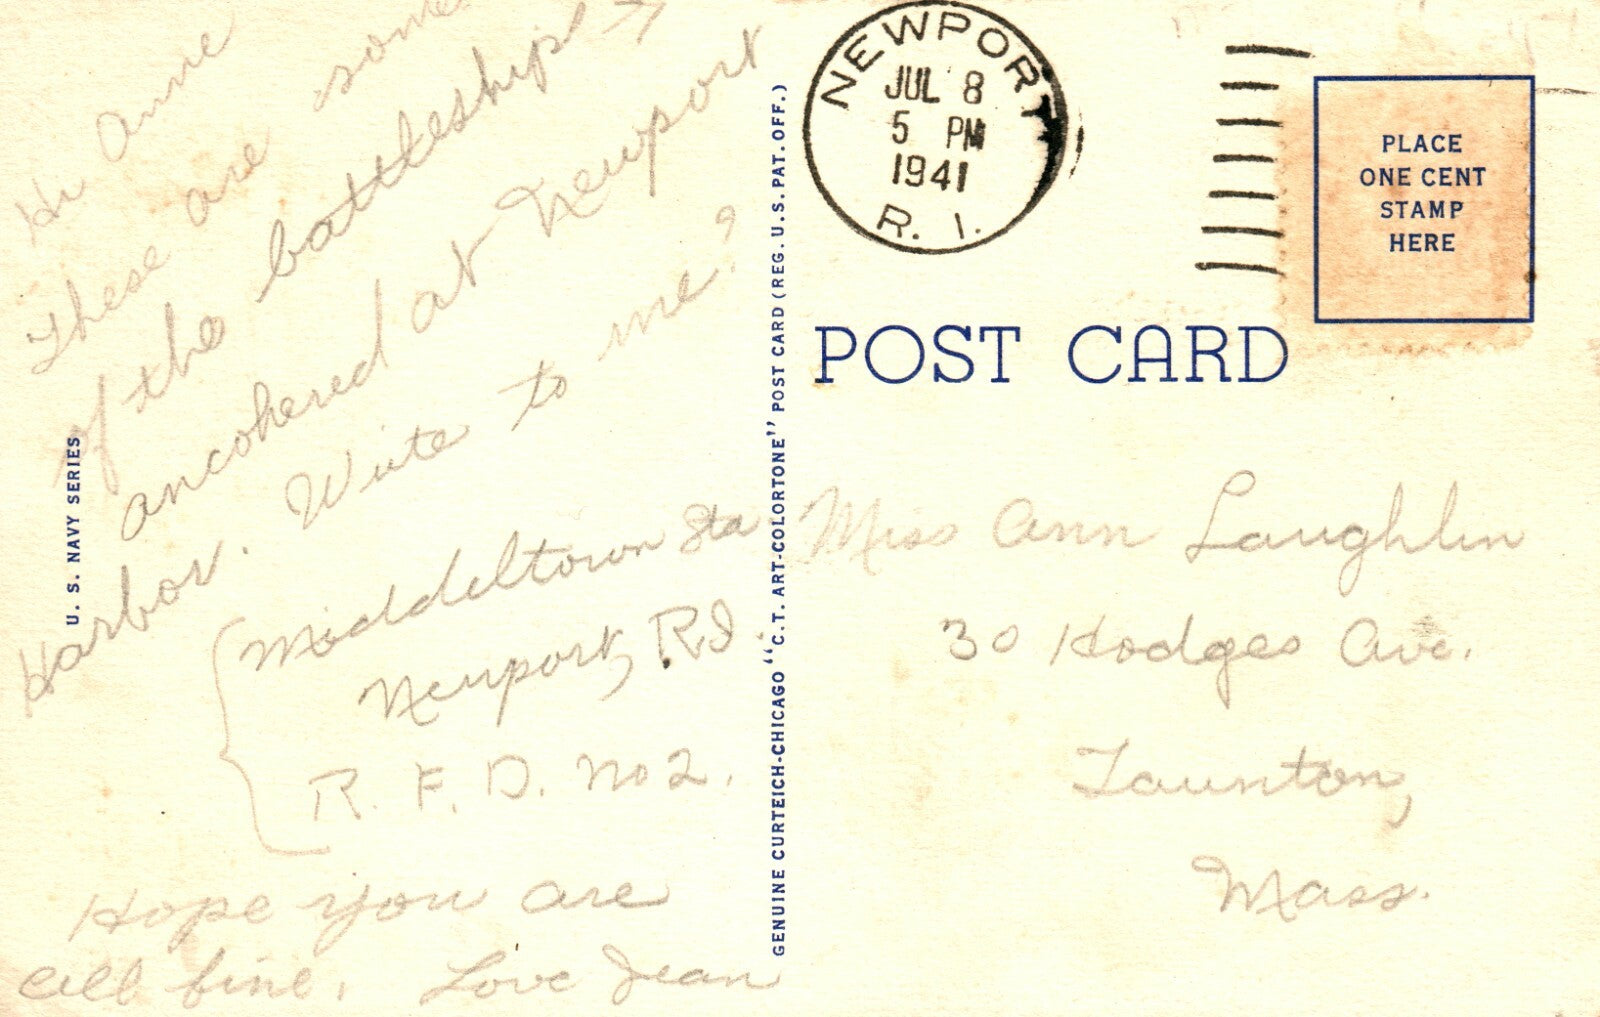 Hi Anne
These are some
of the battleships →
ancohered at Newport
Harbor. Write to me?
Middeltown Sta
Newport, RI
R. F. D. No 2.
Hope you are
all fine. Love Jean
U. S. NAVY SERIES
GENUINE CURTEICH-CHICAGO "C.T. ART-COLORTONE" POST CARD (REG. U.S. PAT. OFF.)
NEWPORT
JUL 8
5 PM
1941
R. I.
PLACE
ONE CENT
STAMP
HERE
POST CARD
Miss Ann Laughlin
30 Hodges Ave.
Taunton,
Mass.